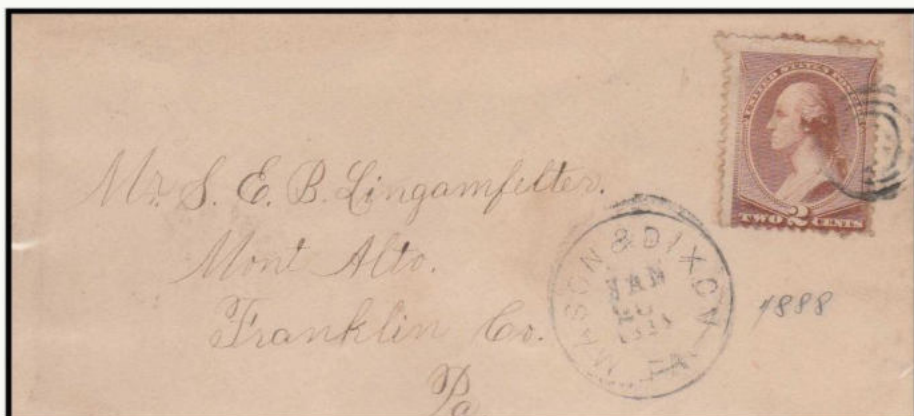 UNITED STATES POSTAGE
TWO 2 CENTS
Mr. S. E. B. Lingamfelter.
Mont Alto.
Franklin Co.
Pa
MASON & DIXON
JAN
1888